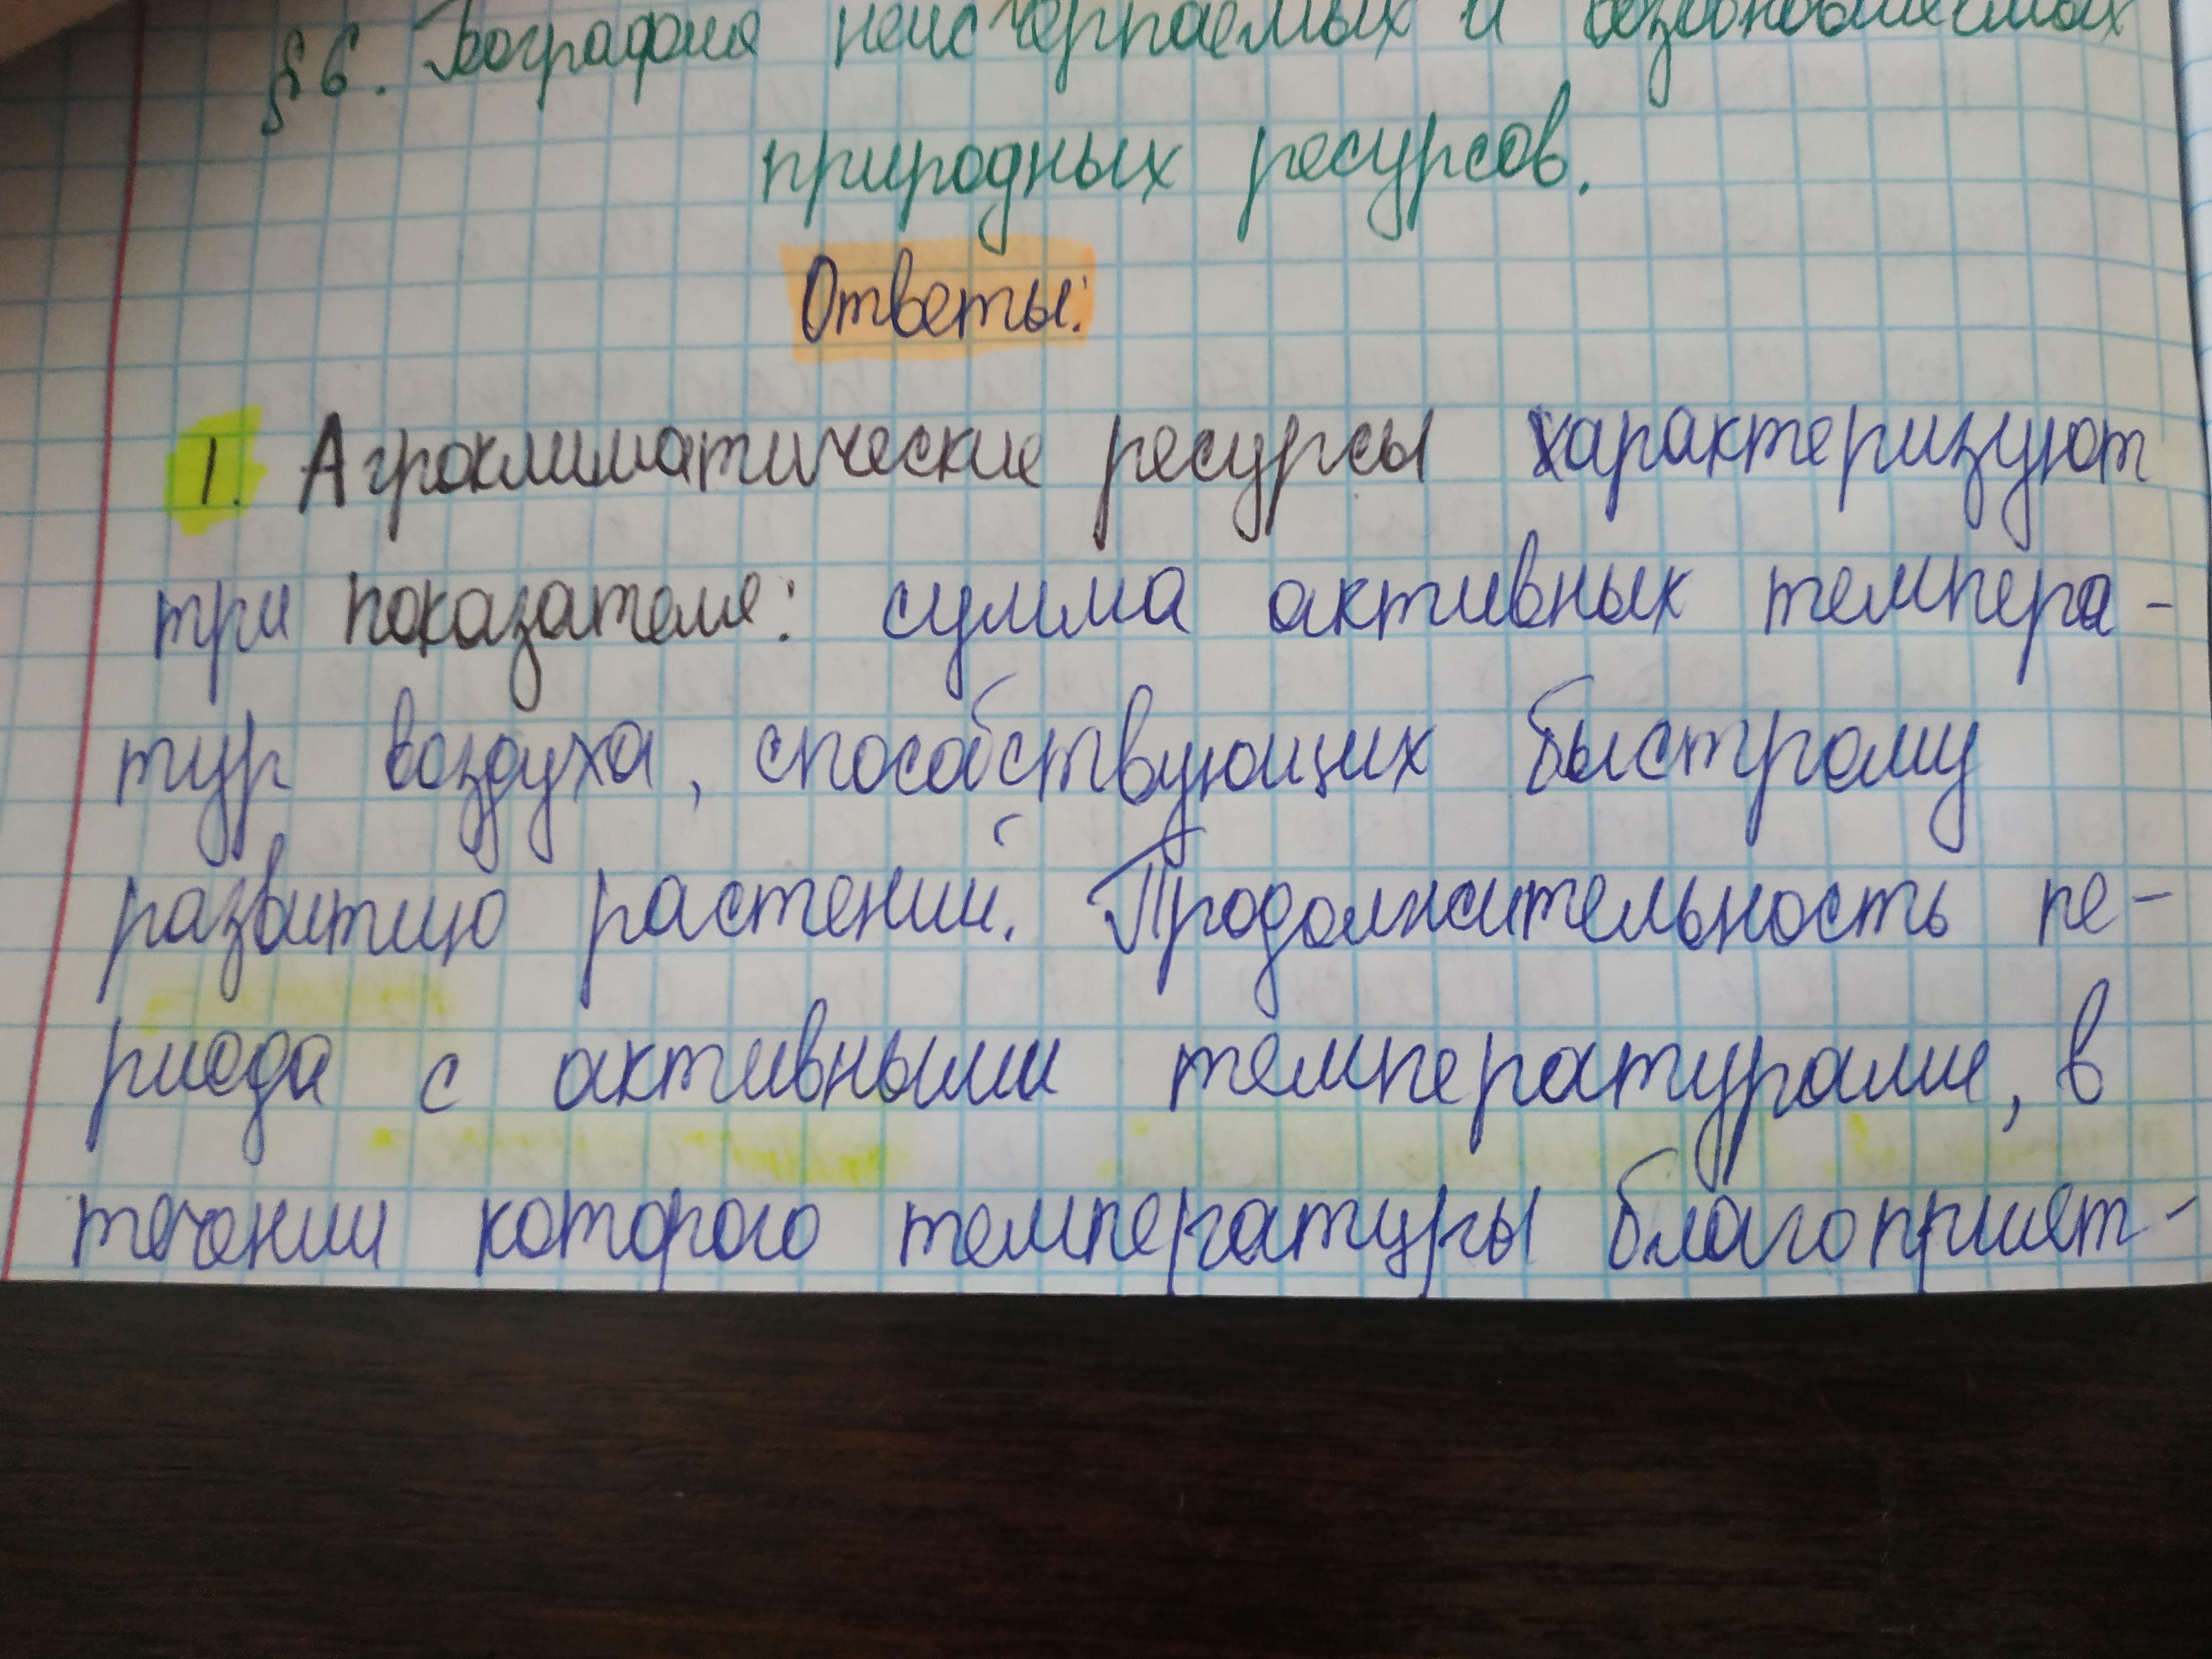 §6. География неисчерпаемых и возобновляемых
природных ресурсов.
Ответы:
1. Агроклиматические ресурсы характеризуют
три показателя: сумма активных темпера-
тур воздуха, способствующих быстрому
развитию растений. Продолжительность пе-
риода с активными температурами, в
течении которого температуры благоприят-